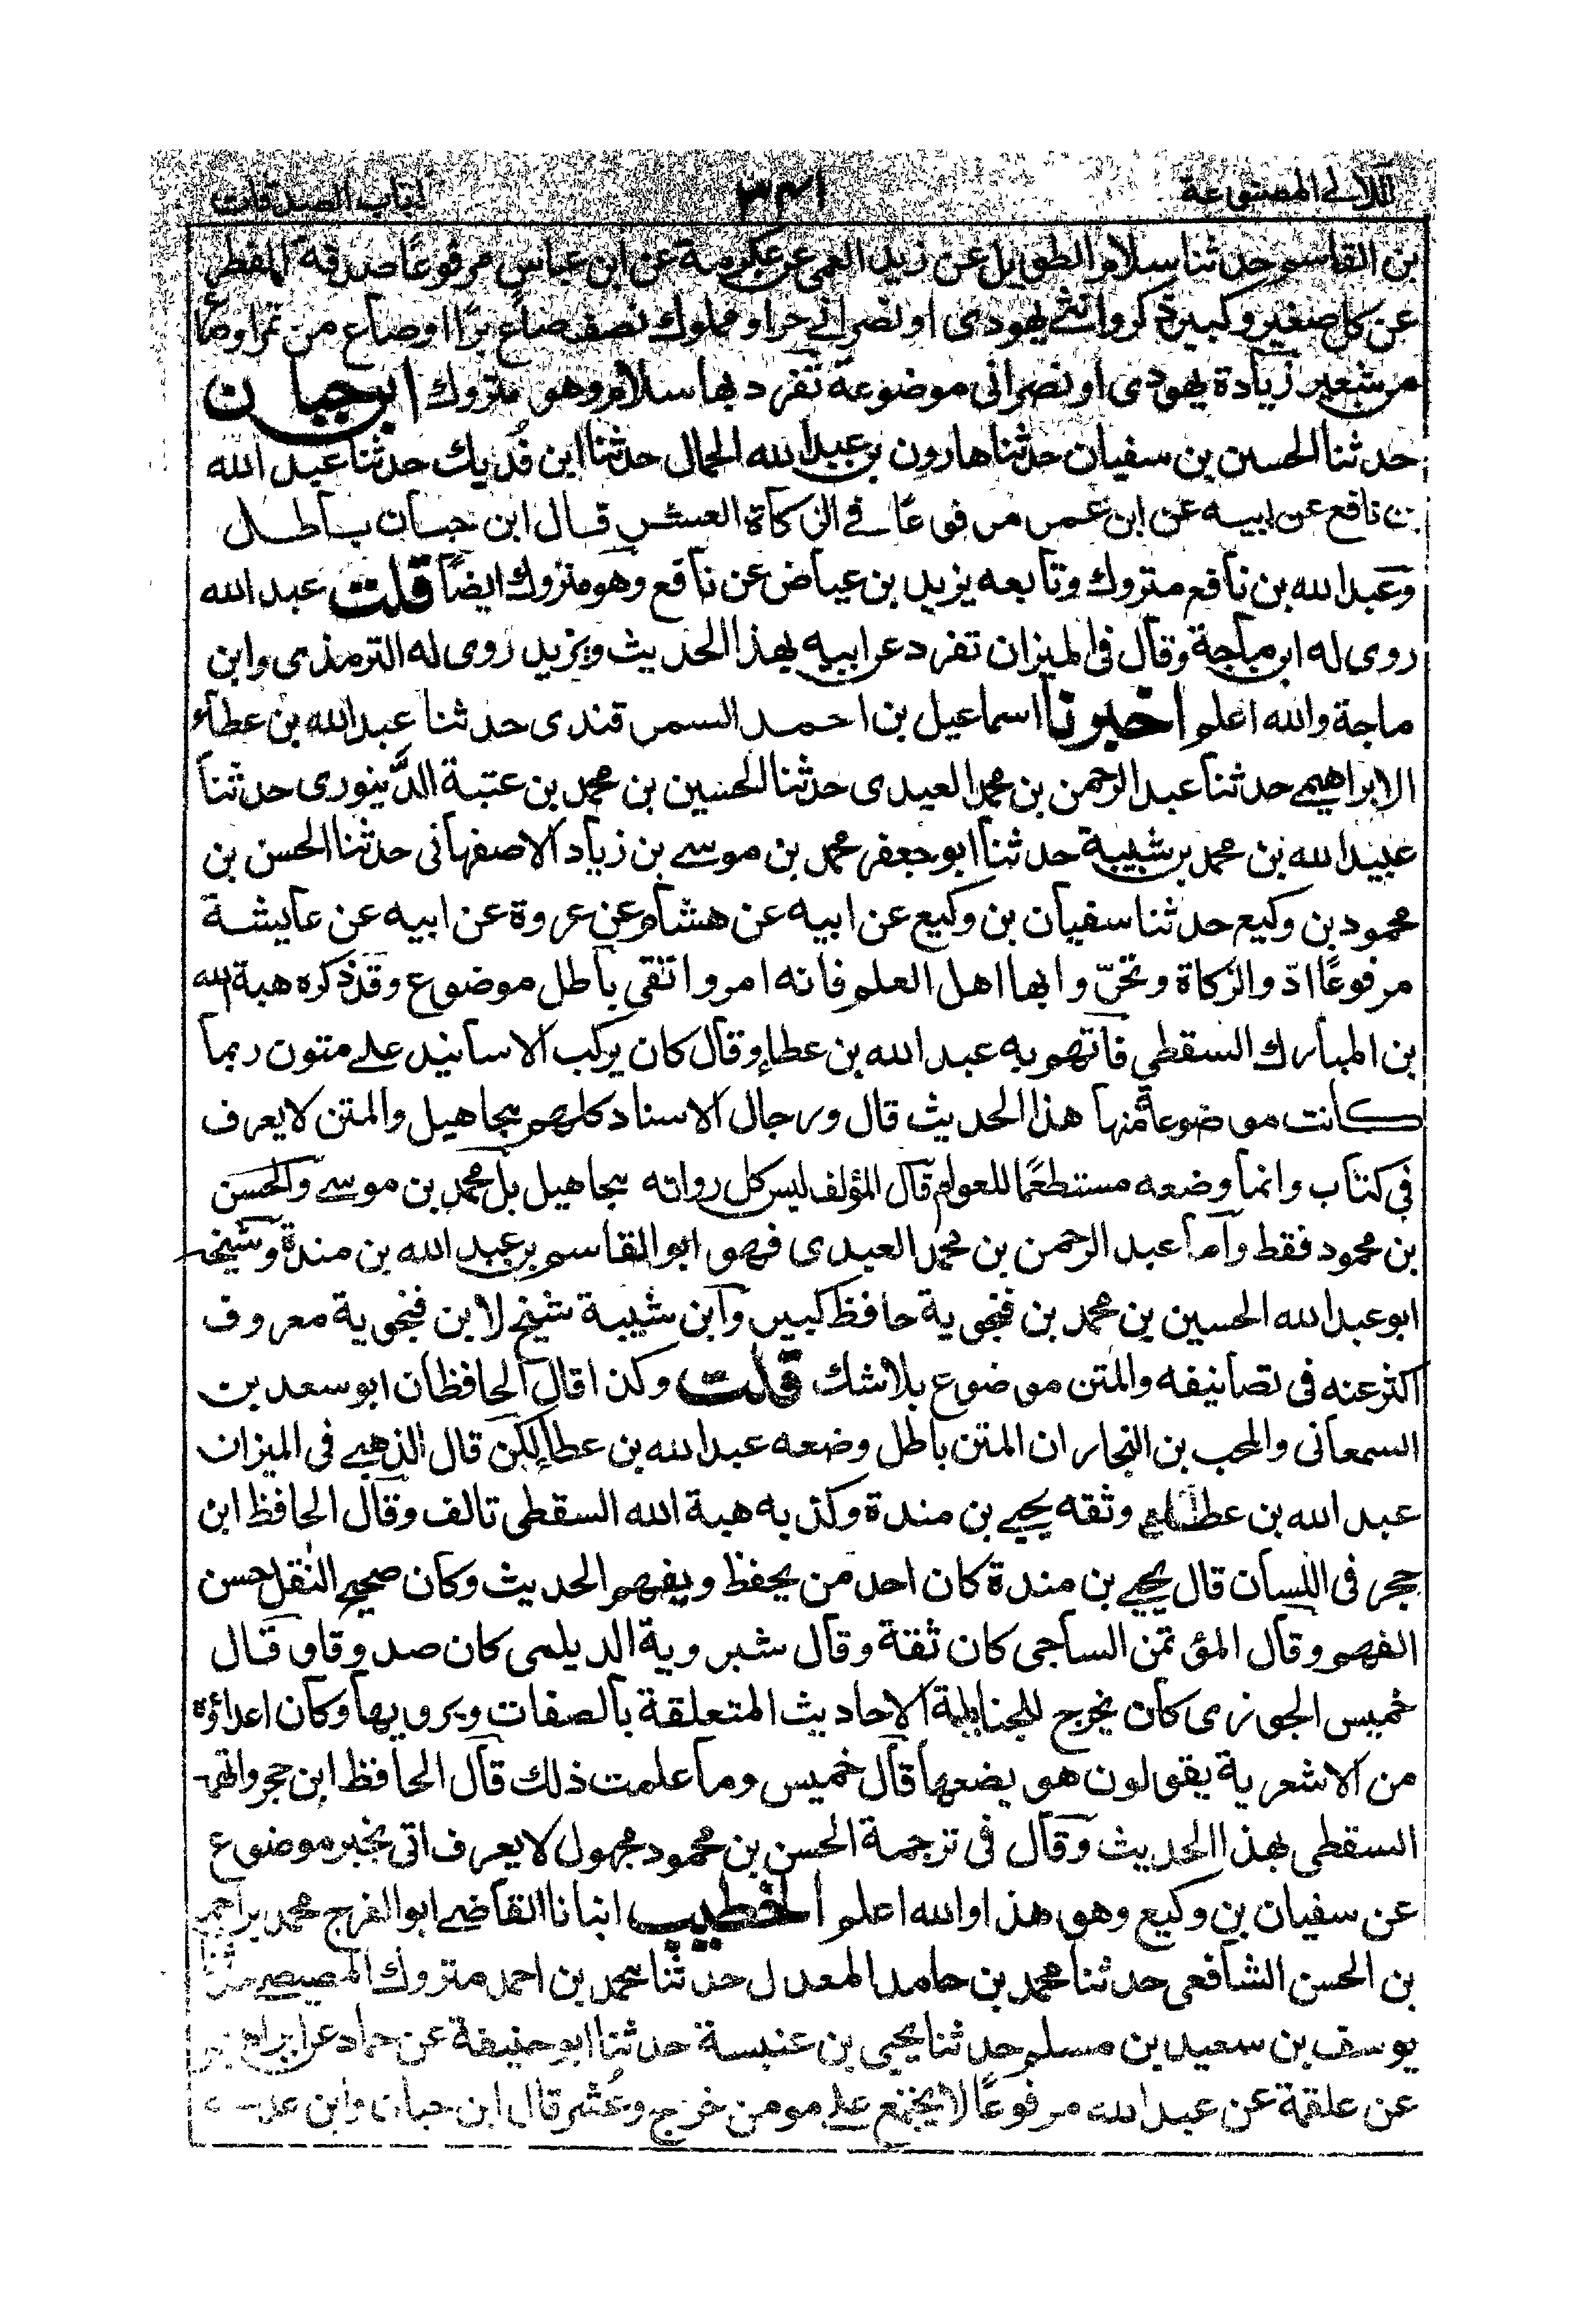 اللآلي المصنوعة ٣٤١ كتاب الصدقات
بن القاسم حدثنا سلام الطويل عن زيد العمى عن عكرمة عن ابن عباس مرفوعًا صدقة الفطر
عن كل صغير وكبير ذكر وانثى يهودى او نصرانى حر او مملوك نصف صاع برّ او صاع من تمر او صاع
من شعير زيادة يهودى او نصرانى موضوعة تفرد بها سلام وهو متروك ابن حبان
حدثنا الحسين بن سفيان حدثنا هارون بن عبد الله الحمال حدثنا ابن فُديك حدثنا عبد الله
بن نافع عن ابيه عن ابن عمر مرفوعًا فى الزكاة العشر قال ابن حبان باطل
وعبد الله بن نافع متروك وتابعه يزيد بن عياض عن نافع وهو متروك ايضًا قلت عبد الله
روى له ابن ماجة وقال فى الميزان تفرد عن ابيه بهذا الحديث ويزيد روى له الترمذى وابن
ماجة والله اعلم اخبرنا اسماعيل بن احمد السمرقندى حدثنا عبد الله بن عطاء
الابراهيمى حدثنا عبد الرحمن بن محمد العبدى حدثنا الحسين بن محمد بن عتبة الدَّينورى حدثنا
عبيد الله بن محمد بن شيبة حدثنا ابو جعفر محمد بن موسى بن زياد الاصفهانى حدثنا الحسن بن
محمود بن وكيع حدثنا سفيان بن وكيع عن ابيه عن هشام عن عروة عن ابيه عن عايشة
مرفوعًا ادّوا الزكاة وتحرّوا بها اهل العلم فانه امر واتقى باطل موضوع وقد ذكره هبة الله
بن المبارك السقطى فاتهم به عبد الله بن عطاء وقال كان يركب الاسانيد على متون ربما
كانت موضوعة منها هذا الحديث قال ورجال الاسناد كلهم مجاهيل والمتن لا يعرف
فى كتاب وانما وضعه مستطعمًا للعوام قال المؤلف ليس كل رواته مجاهيل بل محمد بن موسى والحسن
بن محمود فقط واما عبد الرحمن بن محمد العبدى فهو ابو القاسم بن عبد الله بن مندة وشيخه
ابو عبد الله الحسين بن محمد بن فنجوية حافظ كبير وابن شيبة شيخ لابن فنجوية معروف
اكثر عنه فى تصانيفه والمتن موضوع بلا شك قلت وكذا قال الحافظان ابو سعد بن
السمعانى والمحب بن النجار ان المتن باطل وضعه عبد الله بن عطاء لكن قال الذهبى فى الميزان
عبد الله بن عطاء وثقه يحيى بن مندة وكذبه هبة الله السقطى تالف وقال الحافظ ابن
حجر فى اللسان قال يحيى بن مندة كان احد من يحفظ ويفهم الحديث وكان صحيح النقل حسن
الفهم وقال المؤتمن الساجى كان ثقة وقال شيروية الديلمى كان صدوقا وقال
خميس الجوزى كان يخرج للحنابلة الاحاديث المتعلقة بالصفات ويرويها وكان اعداؤه
من الاشعرية يقولون هو يضعها قال خميس وما علمت ذلك قال الحافظ ابن حجر واتهمه
السقطى بهذا الحديث وقال فى ترجمة الحسن بن محمود مجهول لا يعرف اتى بخبر موضوع
عن سفيان بن وكيع وهو هذا والله اعلم الخطيب انبانا القاضى ابو الفرج محمد بن احمد
بن الحسن الشافعى حدثنا محمد بن حامد المعدل حدثنا محمد بن احمد متروك المصيصى حدثنا
يوسف بن سعيد بن مسلم حدثنا يحيى بن عنبسة حدثنا ابو حنيفة عن حماد عن ابراهيم
عن علقمة عن عبد الله مرفوعًا لا يجتمع على مومن خرج وعُشر قال ابن حبان وابن عدى